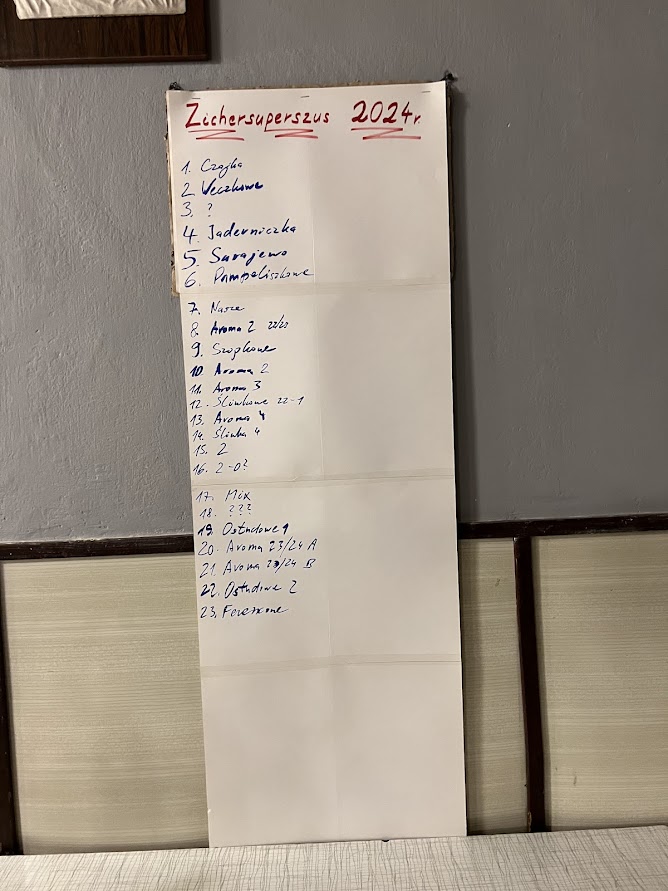 Zichersuperszus 2024r.
1. Czajka
2. Weczkowe
3. ?
4. Jaderniczka
5. Sarajewo
6. Pampeliszkowe
7. Nasze
8. Aroma 2 22/23
9. Szopkowe
10. Aroma 2
11. Aroma 3
12. Śliwkowe 22-1
13. Aroma 4
14. Śliwka 4
15. 2
16. 2-0?
17. Mix
18. ???
19. Ostudowe 1
20. Aroma 23/24 A
21. Aroma 23/24 B
22. Ostudowe 2
23.